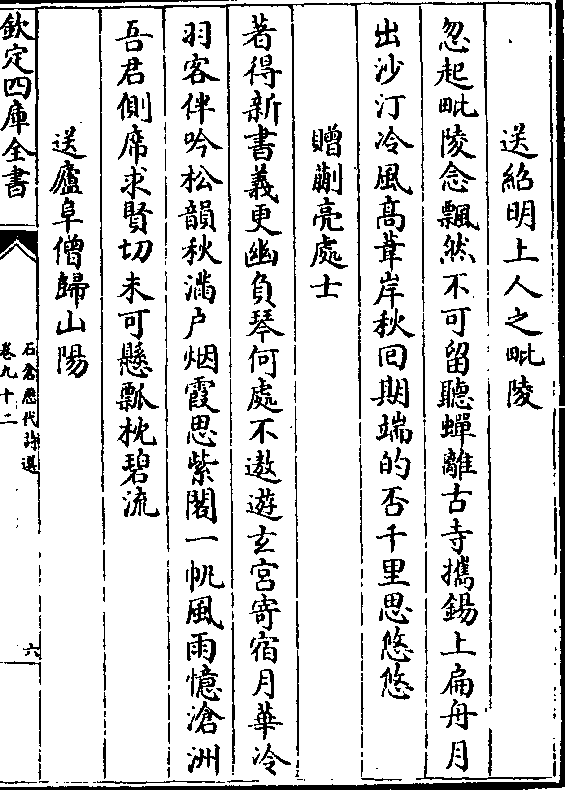 送紹明上人之毗陵
忽起毗陵念飄然不可留聽蟬離古寺攜錫上扁舟月
出沙汀冷風高葦岸秋回期端的否千里思悠悠
贈蒯亮處士
著得新書義更幽負琴何處不遨遊玄宮寄宿月華冷
羽客伴吟松韻秋滿戶烟霞思紫閣一帆風雨憶滄洲
吾君側席求賢切未可懸瓢枕碧流
送廬阜僧歸山陽
欽定四庫全書
石倉歷代詩選
卷九十二
六